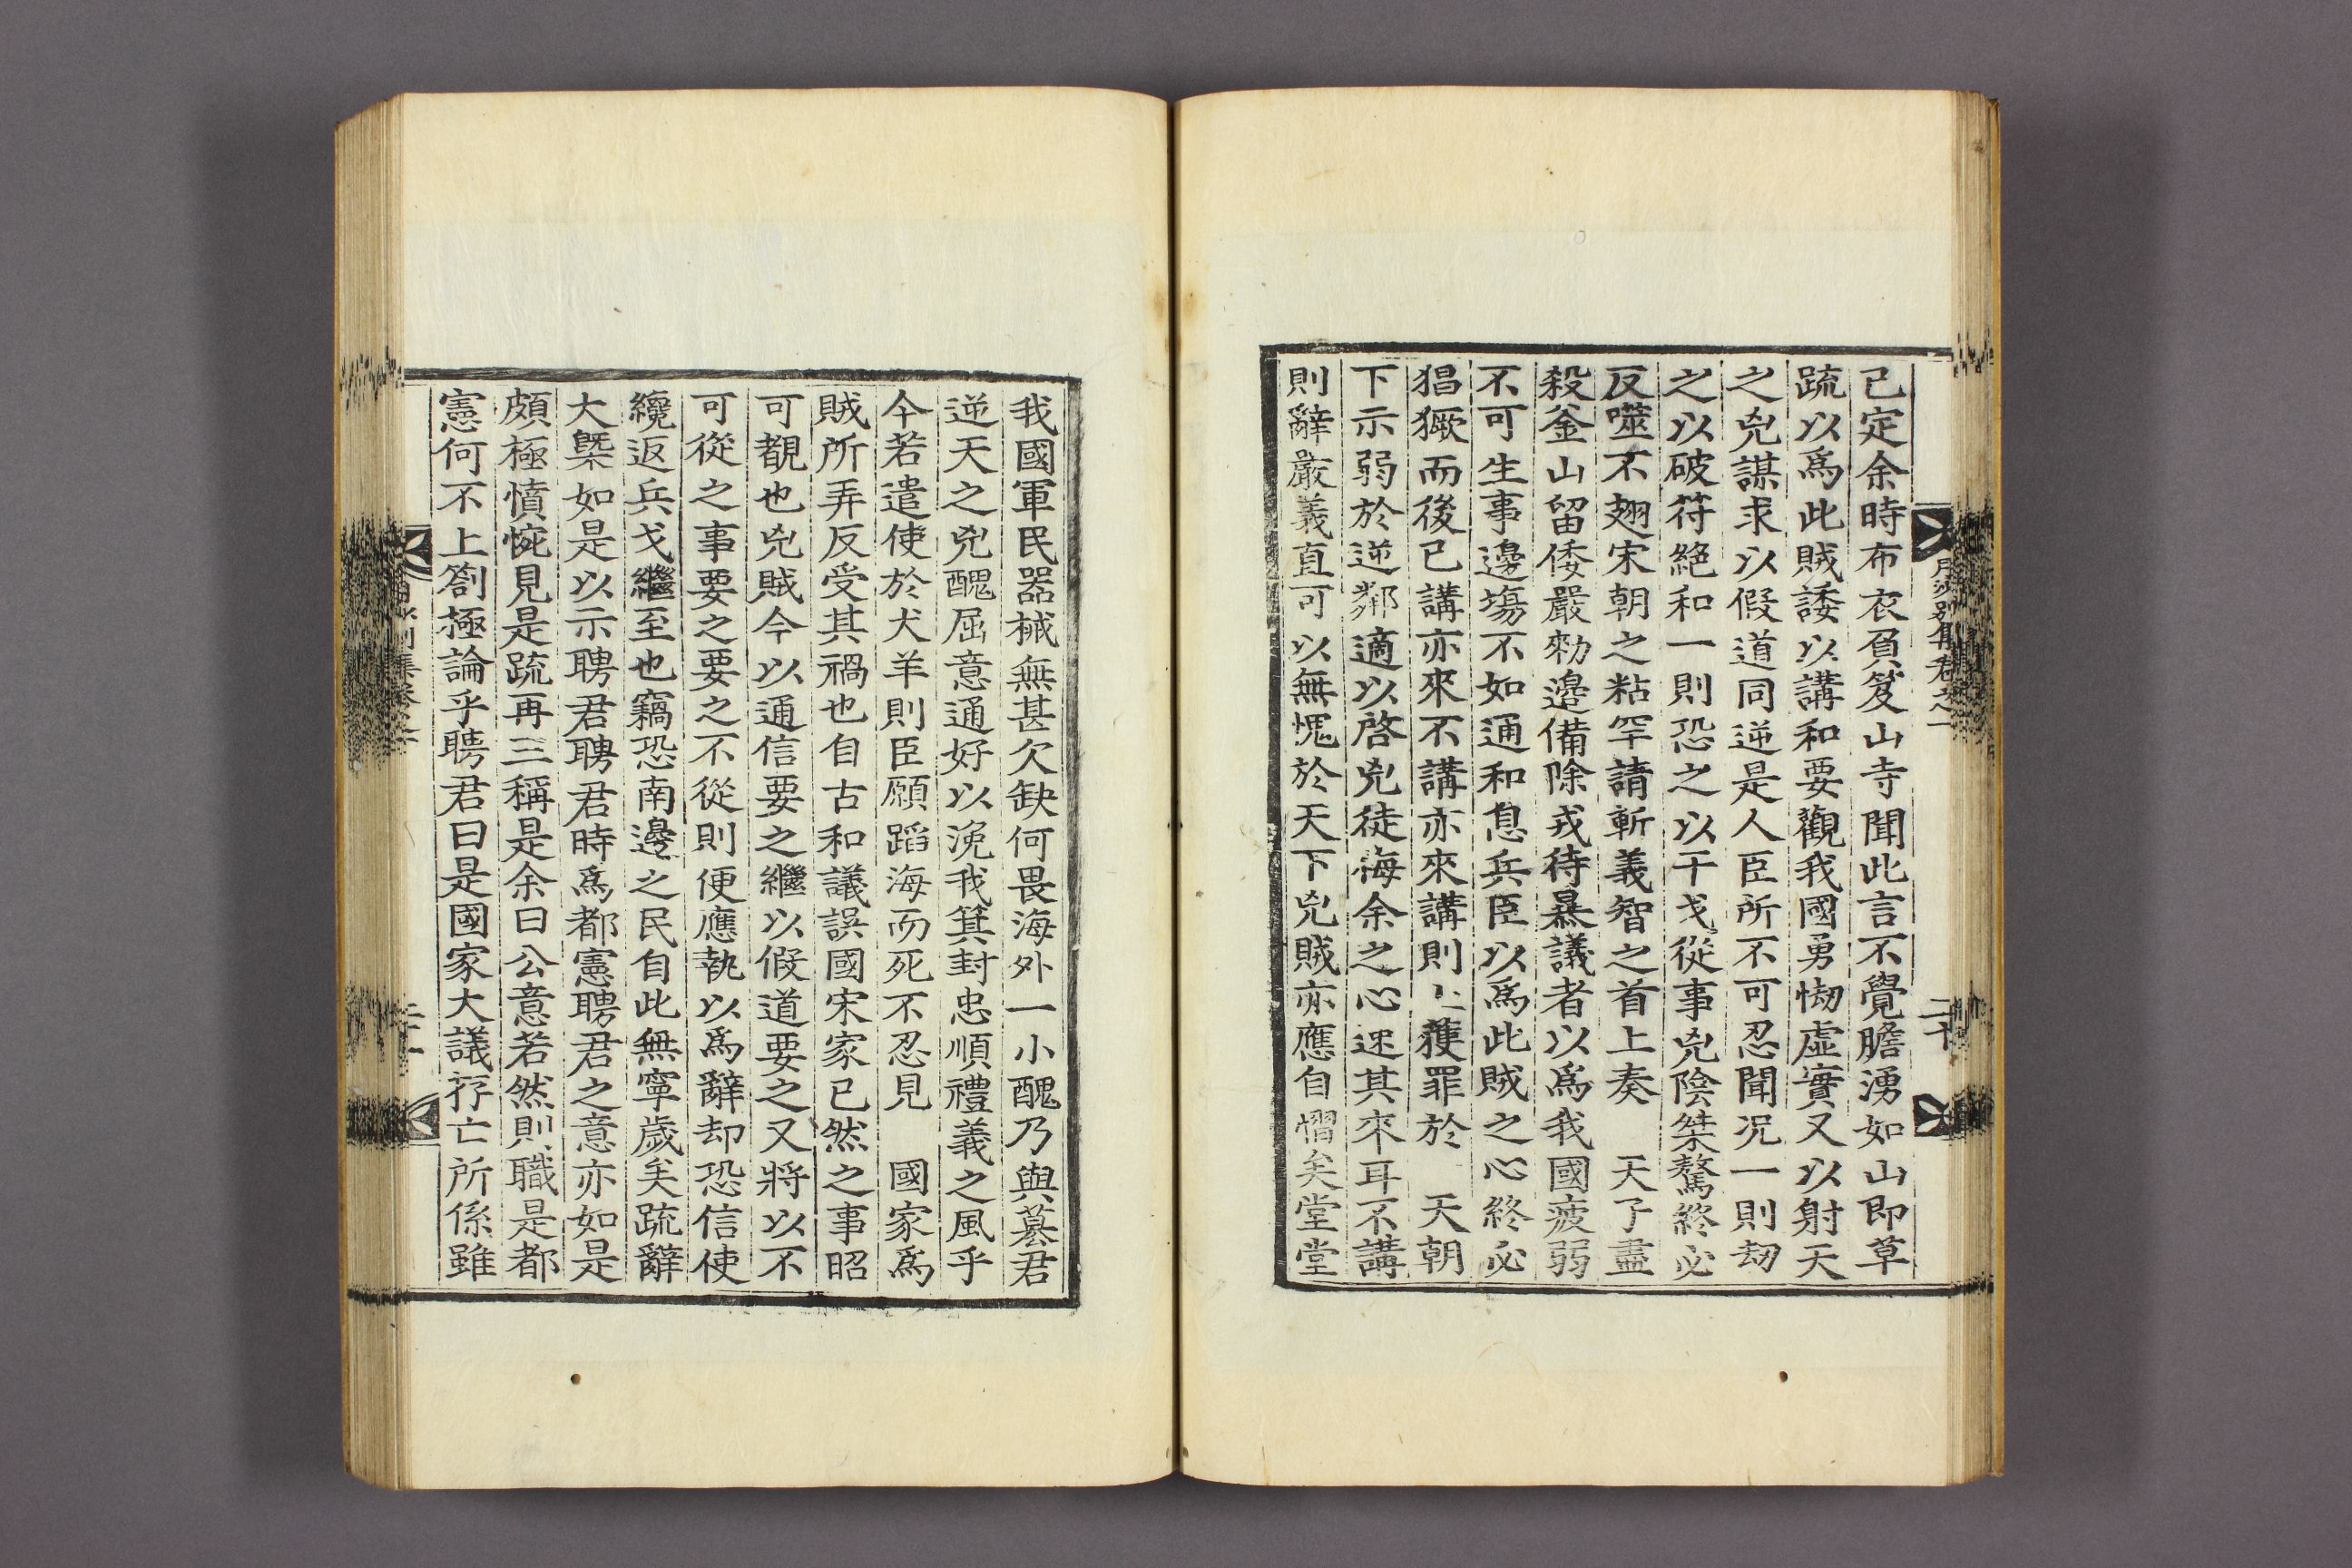 月沙別集卷之一
二十
已定余時布衣負笈山寺聞此言不覺膽湧如山卽草
䟽以爲此賊諉以講和要觀我國勇㤼虛實又以射天
之兇謀求以假道同逆是人臣所不可忍聞况一則刧
之以破符絶和一則恐之以干戈從事兇陰桀驁終必
反噬不翅宋朝之粘罕請斬義智之首上奏 天子盡
殺釜山留倭嚴勑邊備除戎待暴議者以爲我國疲弱
不可生事邊塲不如通和息兵臣以爲此賊之心終必
猖獗而後已講亦來不講亦來講則上獲罪於 天朝
下示弱於逆鄰適以啓兇徒侮余之心速其來耳不講
則辭嚴義直可以無愧於天下兇賊亦應自慴矣堂堂
我國軍民器械無甚欠缺何畏海外一小醜乃與簒君
逆天之兇醜屈意通好以浼我箕封忠順禮義之風乎
今若遣使於犬羊則臣願蹈海而死不忍見 國家爲
賊所弄反受其禍也自古和議誤國宋家已然之事昭
可覩也兇賊今以通信要之繼以假道要之又將以不
可從之事要之要之不從則便應執以爲辭却恐信使
纔返兵戈繼至也竊恐南邊之民自此無寧歲矣䟽辭
大槩如是以示聘君聘君時爲都憲聘君之意亦如是
頗極憤惋見是䟽再三稱是余曰公意若然則職是都
憲何不上劄極論乎聘君曰是國家大議存亡所係雖